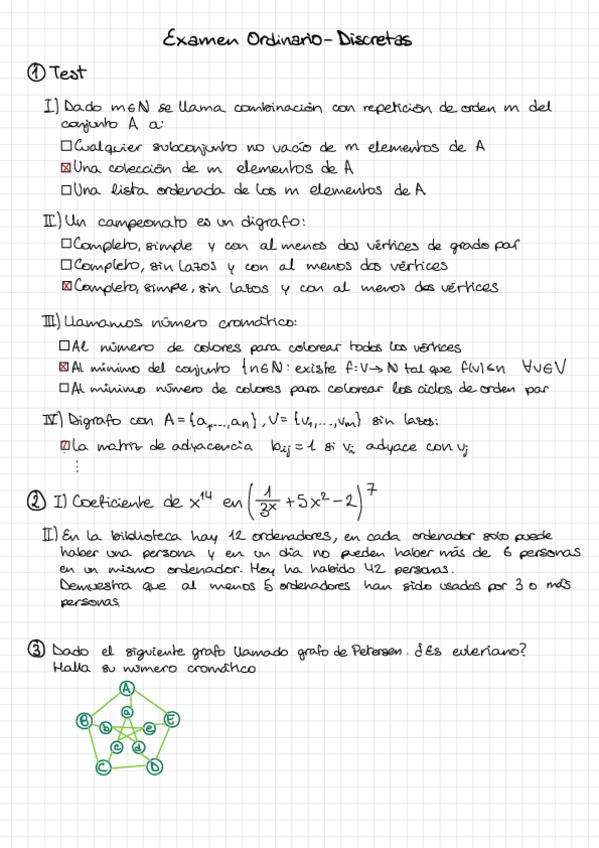 Examen Ordinario - Discretas
① Test
I) Dado m∈N se llama combinación con repetición de orden m del
conjunto A a:
☐ Cualquier subconjunto no vacío de m elementos de A
☒ Una colección de m elementos de A
☐ Una lista ordenada de los m elementos de A
II) Un campeonato es un digrafo:
☐ Completo, simple y con al menos dos vértices de grado par
☐ Completo, sin lazos y con al menos dos vértices
☒ Completo, simpe, sin lazos y con al menos dos vértices
III) Llamamos número cromático:
☐ Al número de colores para colorear todos los vértices
☒ Al mínimo del conjunto {n∈N: existe f: V→N tal que f(v)≤n ∀v∈V
☐ Al mínimo número de colores para colorear los ciclos de orden par
IV) Digrafo con A={a,...,an}, V={v1,...,vm} sin lazos:
☐ La matriz de adyacencia bij=1 si vi adyace con vj
⋮
② I) Coeficiente de x^14 en (1/3x + 5x^2 - 2)^7
II) En la biblioteca hay 12 ordenadores, en cada ordenador solo puede
haber una persona y en un día no pueden haber más de 6 personas
en un mismo ordenador. Hoy ha habido 42 personas.
Demuestra que al menos 5 ordenadores han sido usados por 3 o más
personas
③ Dado el siguiente grafo llamado grafo de Petersen. ¿Es euleriano?
Halla su número cromático
A
a
B
b
e
E
c
d
C
D